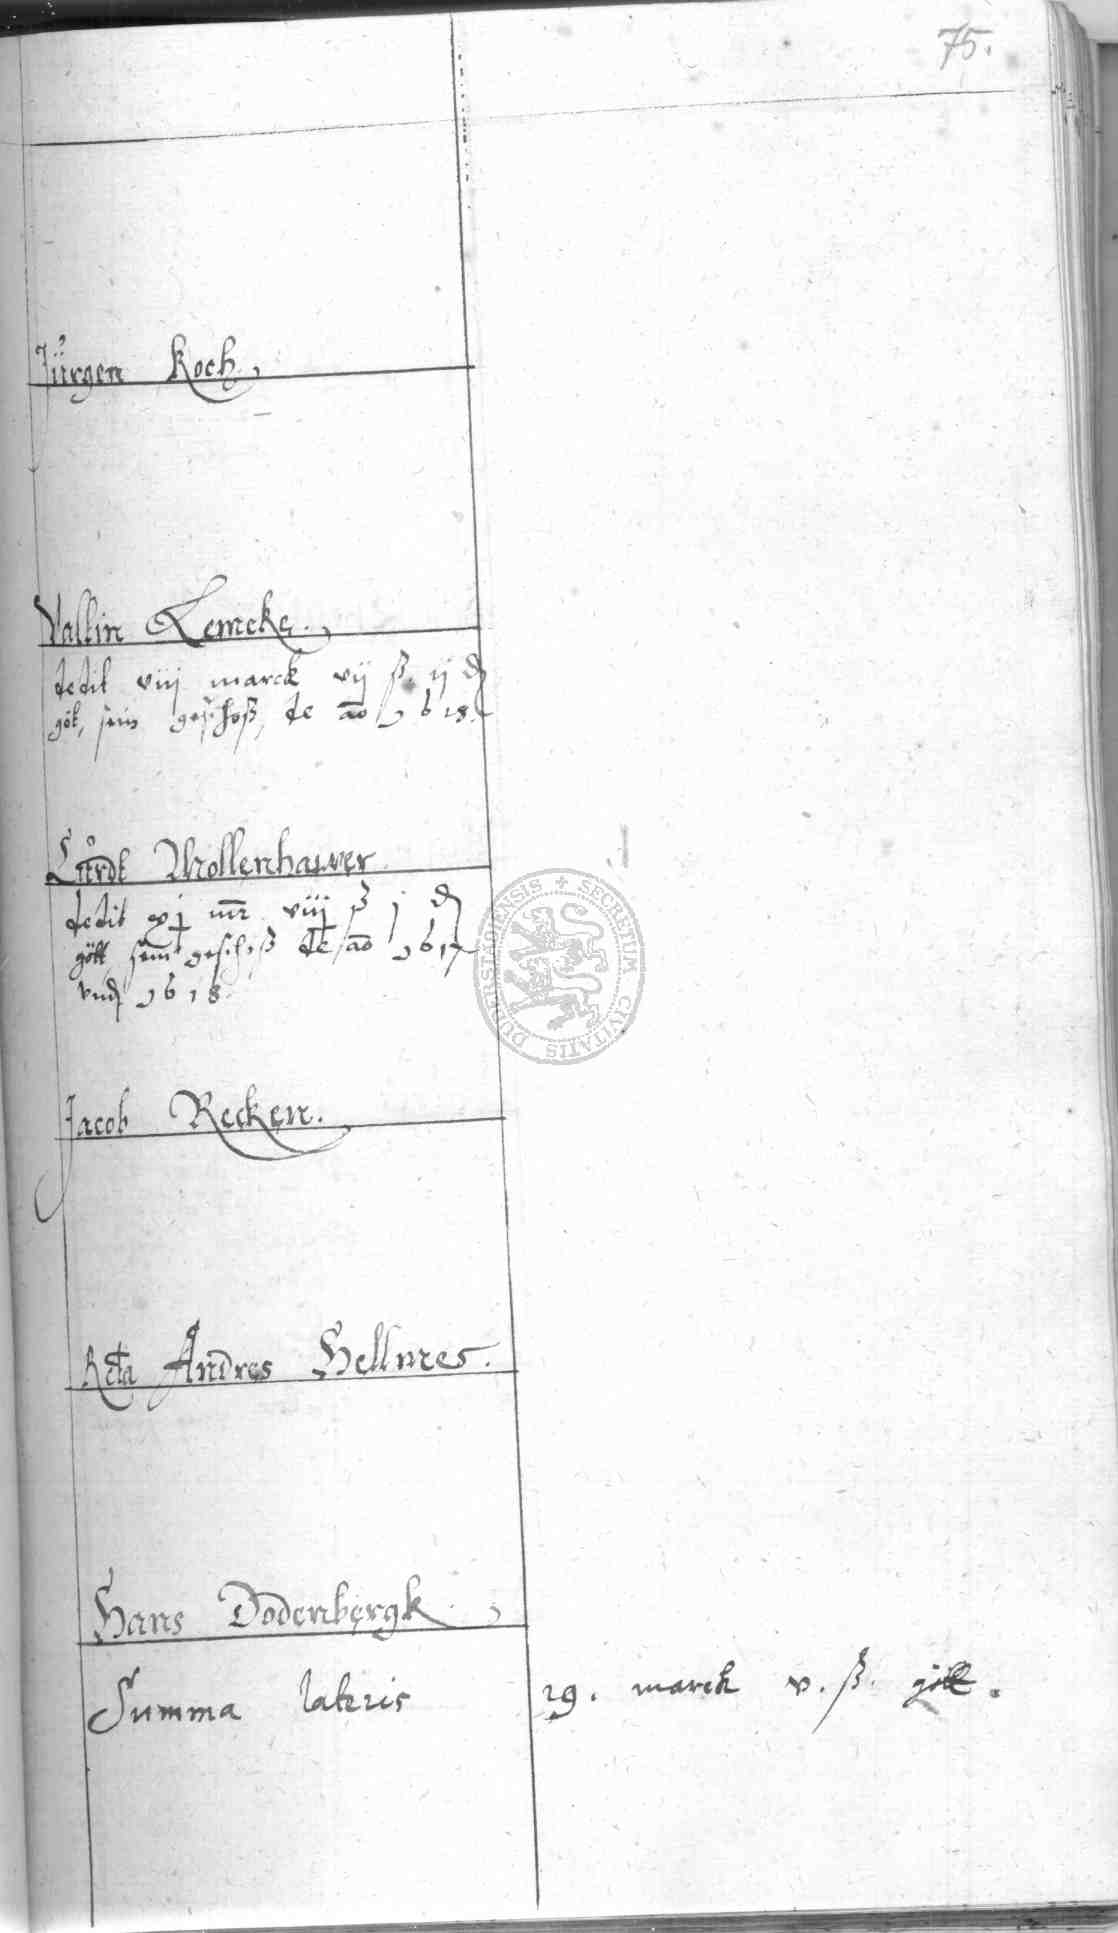 75.
Jürgen Koch.
Valtin Lemcke.
dedit viij marck vij ß. ij ₰
göt, sein geschoß, de ao 1618.
Curdt Mollenhawer
dedit xj mr viij ß j ₰
gött sein geschoß de ao 1617
vnd 1618
Jacob Recken.
Rcta Andres Hellmes.
Hans Dodenbergk.
Summa lateris 29. marck v. ß. gött.
DUDERSTADIENSIS + SECRETUM CIVITATIS